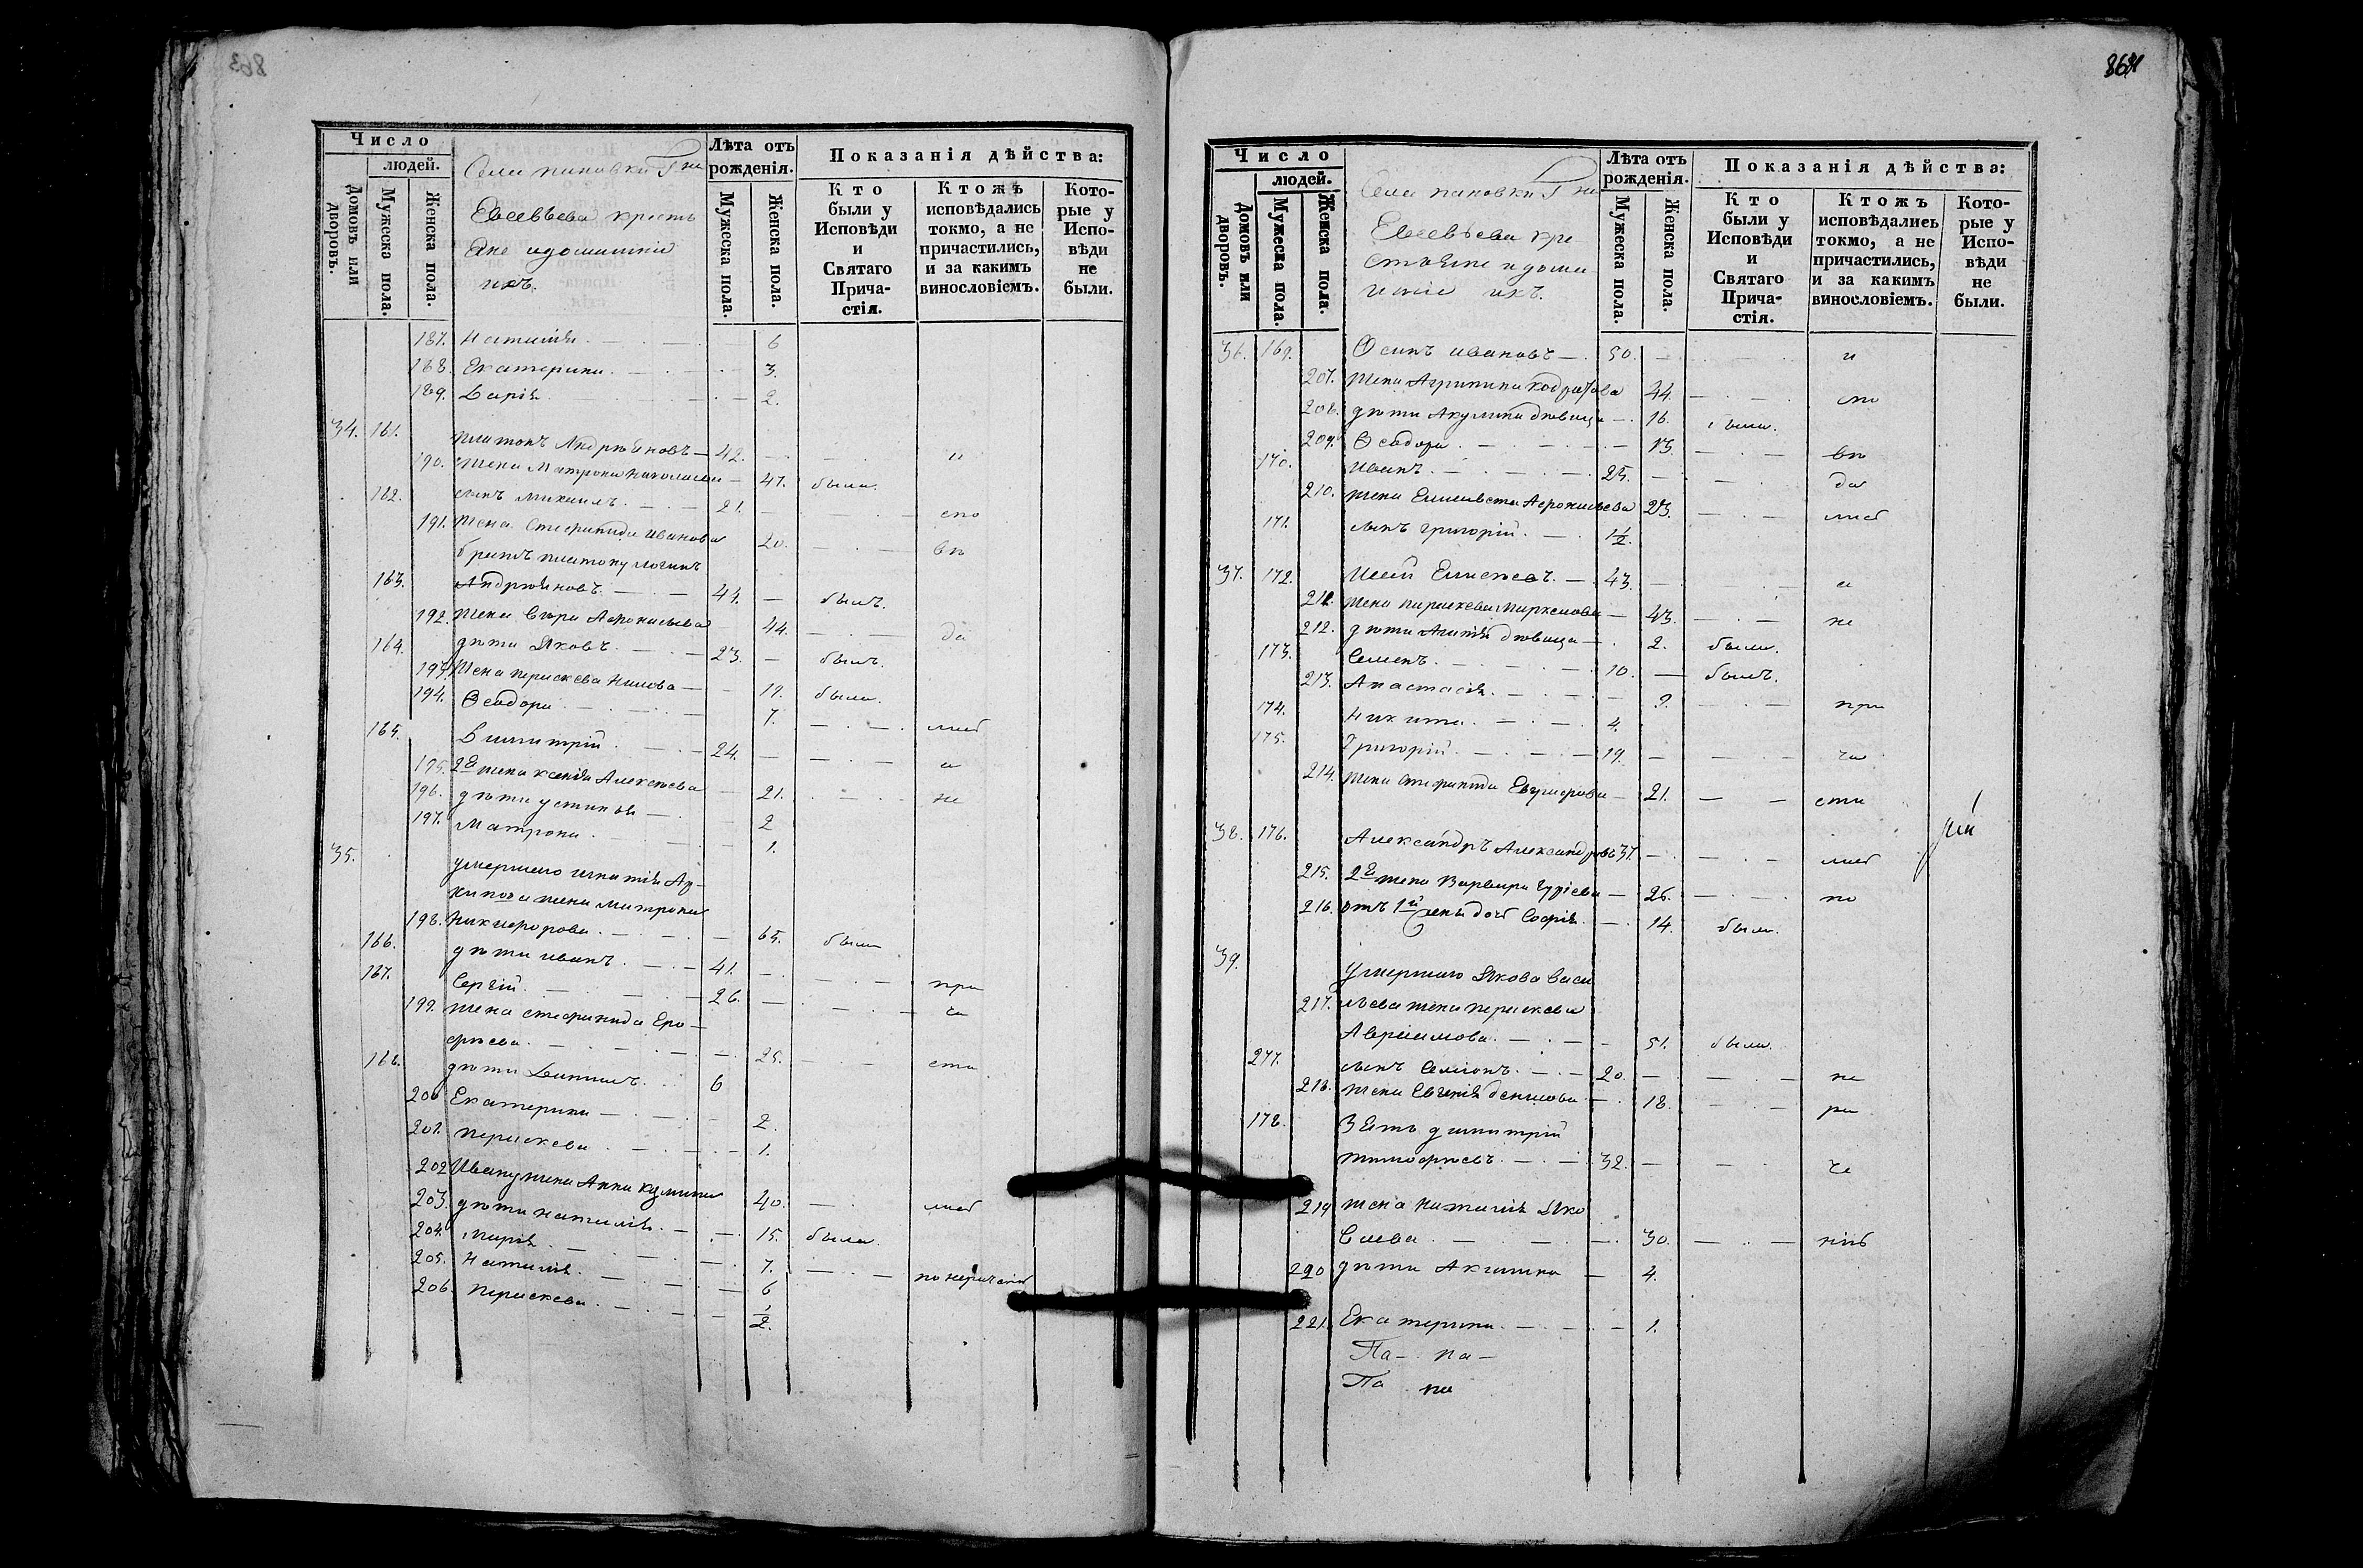 863
Число
людей.
Домовъ или дворовъ.
Мужеска пола.
Женска пола.
Села пановки Гна
Евсевьева кресть
яне идомашніи
ихъ.
Лѣта отъ рожденія.
Мужеска пола.
Женска пола.
Показанія дѣйства:
Кто были у Исповѣди и Святаго Прича-стія.
Ктожъ исповѣдались токмо, а не причастились, и за какимъ винословіемъ.
Кото-рые у Испо-вѣди не были.
187. Наталія 6
188. Екатерина 3.
189. Дарія 2.
34. 161. Платонъ Андрѣяновъ 42. и
190. жена Матрона Николаева 47. была.
162. сынъ Михаилъ 21. спо
191. Жена Стефанида Иванова 20. вѣ
братъ платону логинъ
163. Андрѣяновъ 44. былъ.
192. Жена Вѣра Афонасьева 44. да
164. дѣти Яковъ 23. былъ.
193. Жена пераскева Нилова 19. была.
194. Ѳеодора 7. лись
165. Димитрій 24. а
195. 2я жена ксенія Алексѣева 21. не
196. дѣти устинья 2
197. Матрона 1.
35.
умершаго игнатія Ар-
хипова жена матрона
198. Никифорова 65. была
166. дѣти иванъ 41. при
167. Сергій 26. ча
199. жена стефанида Еро-
фѣева 25. сти
168. дѣти Даниилъ 6
200 Екатерина 2.
201. пераскева 1.
202 Ивану жена Анна кузмина 40. лись
203. дѣти наталія 15. была.
204. марія 7. по нераченію
205. Наталія 6
206. пераскева 1/2.
864
Число
людей.
Домовъ или дворовъ.
Мужеска пола.
Женска пола.
Села пановки Гна
Евсевьева кре
стьяне и дома
шніе ихъ.
Лѣта отъ рожденія.
Мужеска пола.
Женска пола.
Показанія дѣйства:
Кто были у Исповѣди и Святаго Прича-стія.
Ктожъ исповѣдались токмо, а не причастились, и за какимъ винословіемъ.
Кото-рые у Испо-вѣди не были.
36. 169. Осипъ ивановъ 50. и
207. жена Агрипина кодратова 44. спо
208. дѣти Акулина дѣвица 16. была.
209. Ѳеодора 13. вѣ
170. иванъ 25. да
210. жена Елисавета Афонасьева 23. лись
171. сынъ григорій 1 1/2.
37. 172. Исай Елисѣевъ 43. а
211. жена параскева 43. не
212. дѣти дѣвица 2. была.
173. Семенъ 10. былъ.
213. Анастасія 9. при
174. Никита 4.
175. Григорій 19. ча
214. жена стефанида Евграфова 21. сти
38. 176. Александръ Александровъ 37. лись
215. 2я жена Варвара гуріева 26. по
216. отъ 1й жены дочь Софія 14. была.
39.
Умершаго Якова Васи
217. льева жена пераскева
Авраамова 51. была.
277. сынъ Семіонъ 20. не
218. жена Евгенія денисова 18. ра
178. Зять димитрій
тимофѣевъ 32. че
219 жена наталія Яко
влева 30. нію
220 дѣти Акилина 4.
221. Екатерина 1.
Па- па-
Па па